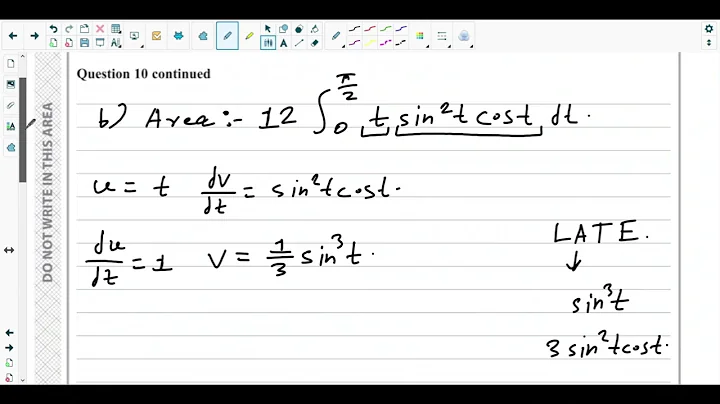 Question 10 continued
DO NOT WRITE IN THIS AREA
b) Area :- 12 ∫₀^(π/2) t sin²t cost dt.
u = t dv/dt = sin²t cost.
du/dt = 1 v = 1/3 sin³t.
LATE.
↓
sin³t
3 sin²t cost.